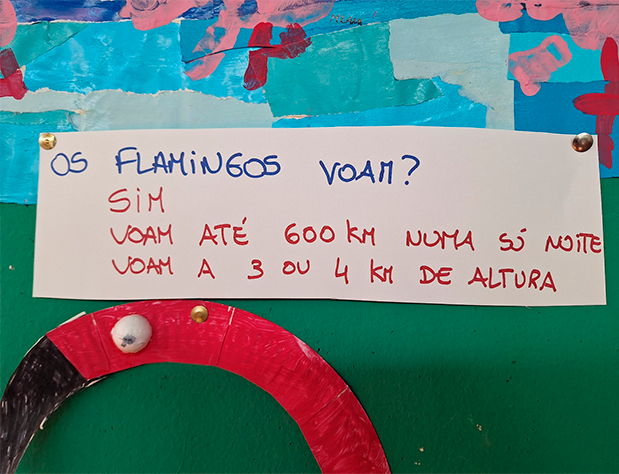 OS FLAMINGOS VOAM?
SIM
VOAM ATÉ 600 KM NUMA SÓ NOITE
VOAM A 3 OU 4 KM DE ALTURA